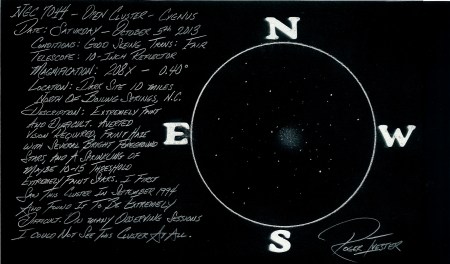 NGC 7044 - Open Cluster - Cygnus
Date: Saturday - October 5th 2013
Conditions: Good Seeing Trans: Fair
Telescope: 10-Inch Reflector
Magnification: 208X - 0.40°
Location: Dark Site 10 miles
North Of Boiling Springs, N.C.
Description: Extremely Faint
And Difficult. Averted
Vision Required, Faint Haze
with Several Bright Foreground
Stars And A Sprinkling of
Maybe 10-15 Threshold
Extremely Faint Stars. I First
Saw This Cluster In September 1994
And Found It To Be Extremely
Difficult. On many Observing Sessions
I Could Not See This Cluster At All.
N
E
W
S
Roger Ivester